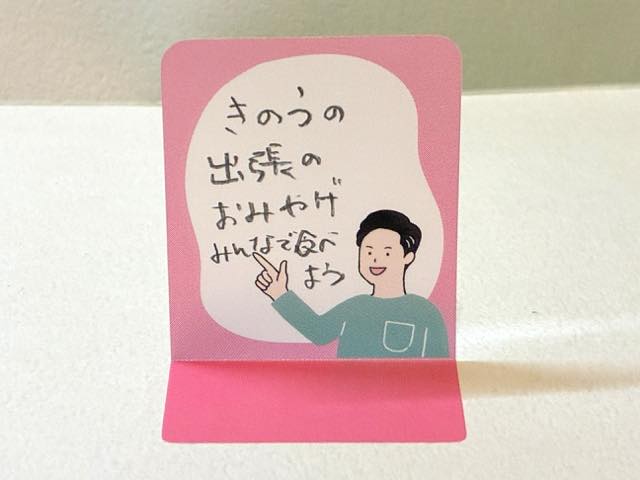 きのうの
出張の
おみやげ
みんなで食べ
よう